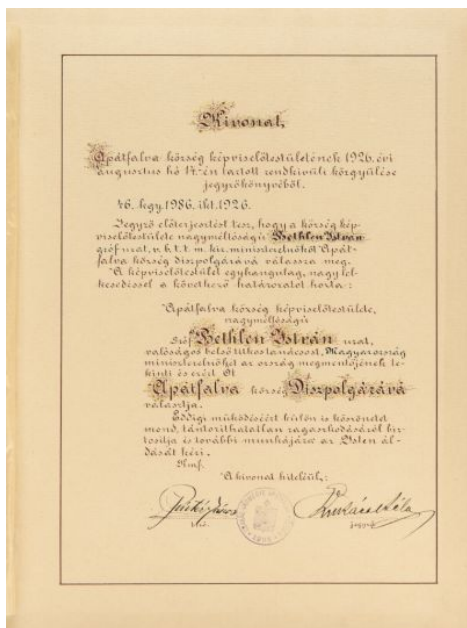 Kivonat,
Apátfalva község képviselőtestületének 1926. évi
augusztus hó 14.-én tartott rendkívüli közgyűlése
jegyzőkönyvéből.
46. kgy. 1986. ikt. 1926.
Jegyző előterjesztést tesz, hogy a község kép-
viselőtestülete nagyméltóságú Bethlen István
gróf urat, v. b. t. t. m. kir. miniszterelnököt Apát-
falva község díszpolgárává válassza meg.
A képviselőtestület egyhangulag, nagy lel-
kesedéssel a következő határozatot hozta:
Apátfalva község képviselőtestülete,
nagyméltóságú
Gróf Bethlen István urat,
valóságos belső titkos tanácsost, Magyarország
miniszterelnökét az ország megmentőjének te-
kinti és ezért Őt
Apátfalva község Díszpolgárává
választja.
Eddigi működéséért külön is köszönetet
mond, tántoríthatatlan ragaszkodásáról biz-
tosítja és további munkájára az Isten ál-
dását kéri.
Kmf.
A kivonat hiteléül: